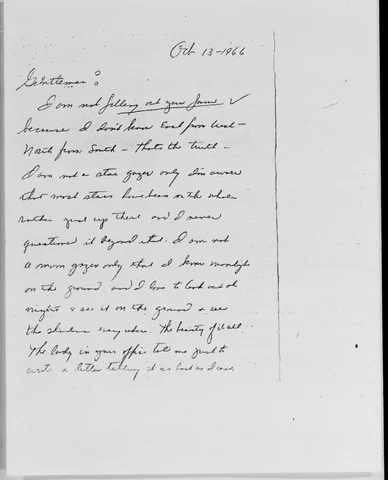 Oct 13-1966
Gentlemen:
I am not filling out your form ✓
because I don't know East from West -
North from South - That's the truth -
I am not a star gazer only I'm aware
that most stars have been on the whole
rather quiet up there and I never
questioned it beyond that. I am not
a moon gazer only that I know moonlight
on the ground and I love to look out at
night & see it on the ground & see
the shadows everywhere. The beauty of it all.
The lady in your office told me just to
write a letter telling it as best as I can,